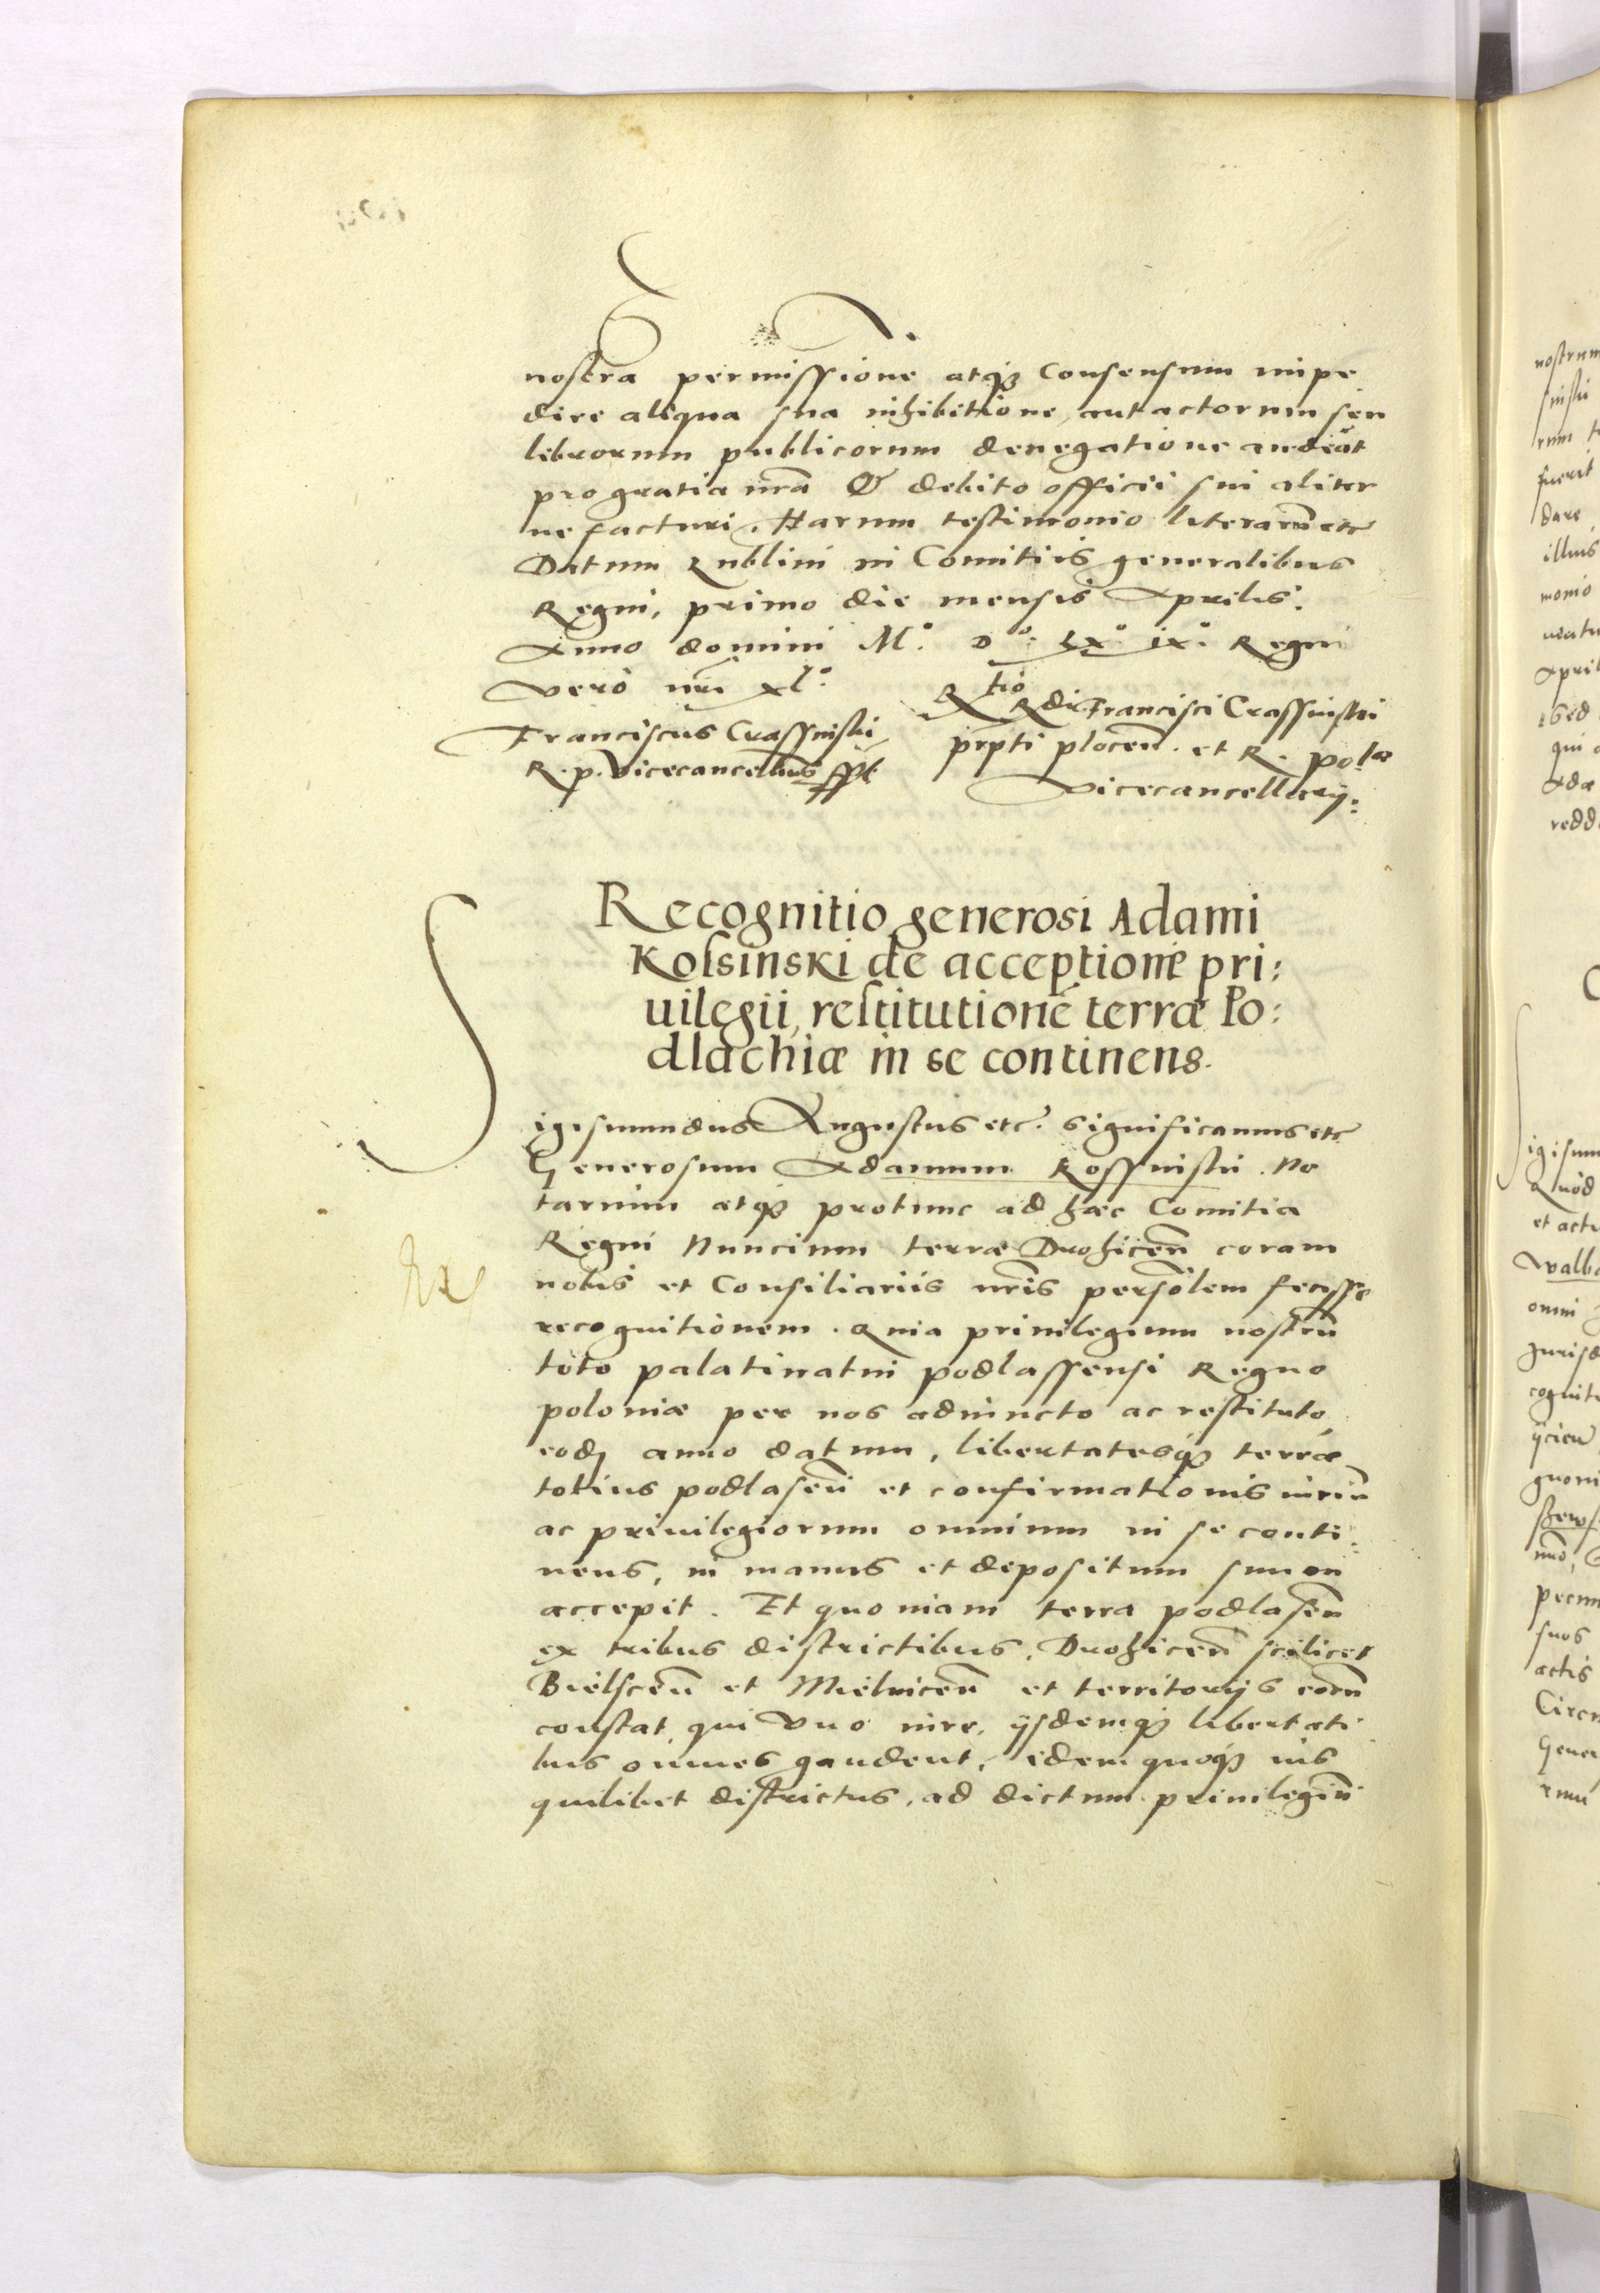 nostra permissione atq3 consensum impe
dire aliqua sua inhibitione, aut actorum seu
librorum publicorum denegatione audeāt
pro gratia nrā & debito officii sui aliter
ne facturi. Harum testimonio literarū etc
Datum Lublini in Comitiis generalibus
Regni, primo die mensis Aprilis.
Anno domini M.° D.° LX.° ix.° Regni
vero nrī xl.°
Franciscus Crassinski
R. p. Vicecancellarius sspt
Rtio Rdi Francisci Crassinski
prpti plocen̄. et R. polæ
vicecancellarij.
Recognitio generosi Adami
Kossinski de acceptione pri:
uilegii, restitutionē terræ Po:
dlachiæ in se continens.
Sigismundus Augustus etc. significamus etc
Generosum Adamum Kossinski. No
tarium atq3 protunc ad hæc Comitia
Regni Nuncium terræ Drohicen̄ coram
nobis et Consiliariis nrīs personlem fecisse
recognitionem. Quia priuilegium nostrū
toto palatinatui podlassensi Regno
poloniæ per nos adiuncto ac restituto
eodꝫ anno datum, libertatesq3 terræ
totius podlasen̄ et confirmationis iuriū
ac priuilegiorum omnium in se conti:
nens, in manus et depositum suum
accepit. Et quoniam terra podlasen̄
ex tribus districtibus, Drohicen̄ scilicet
Bielscen̄ et Mielnicen̄ et territorijs eorū
constat, qui vno iure, ijsdemq3 libertati
bus omnes gaudent, idem quoq3 ius
quilibet districtus, ad dictum priuilegiū
nostrum
rum
fuerit
dare
illius
monio
April
qui
redd
Sigisum
Quod
et actu
walb
omni
Jurisd
cognit
suos
actis
Gener